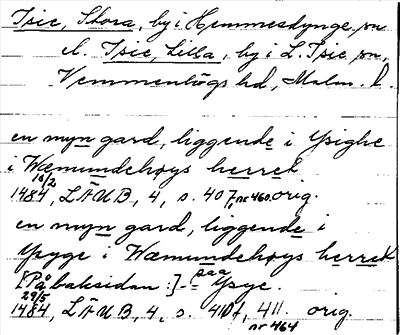 Isie, Stora, by i Hemmesdynge sn
el. Isie, Lilla, by i L. Isie sn,
Vemmenhögs hd, Malm. l.
en myn gard, liggende i Ysighe
i Wæmundehøys herret
10/2
1484, LÄUB, 4, s. 407, nr 460. orig.
en myn gard, liggende i
Ysyge i Wæmundehøys herret
[På baksidan:] - paa Ysye.
29/5
1484, LÄUB, 4, s. 410f, 411. orig.
nr 464